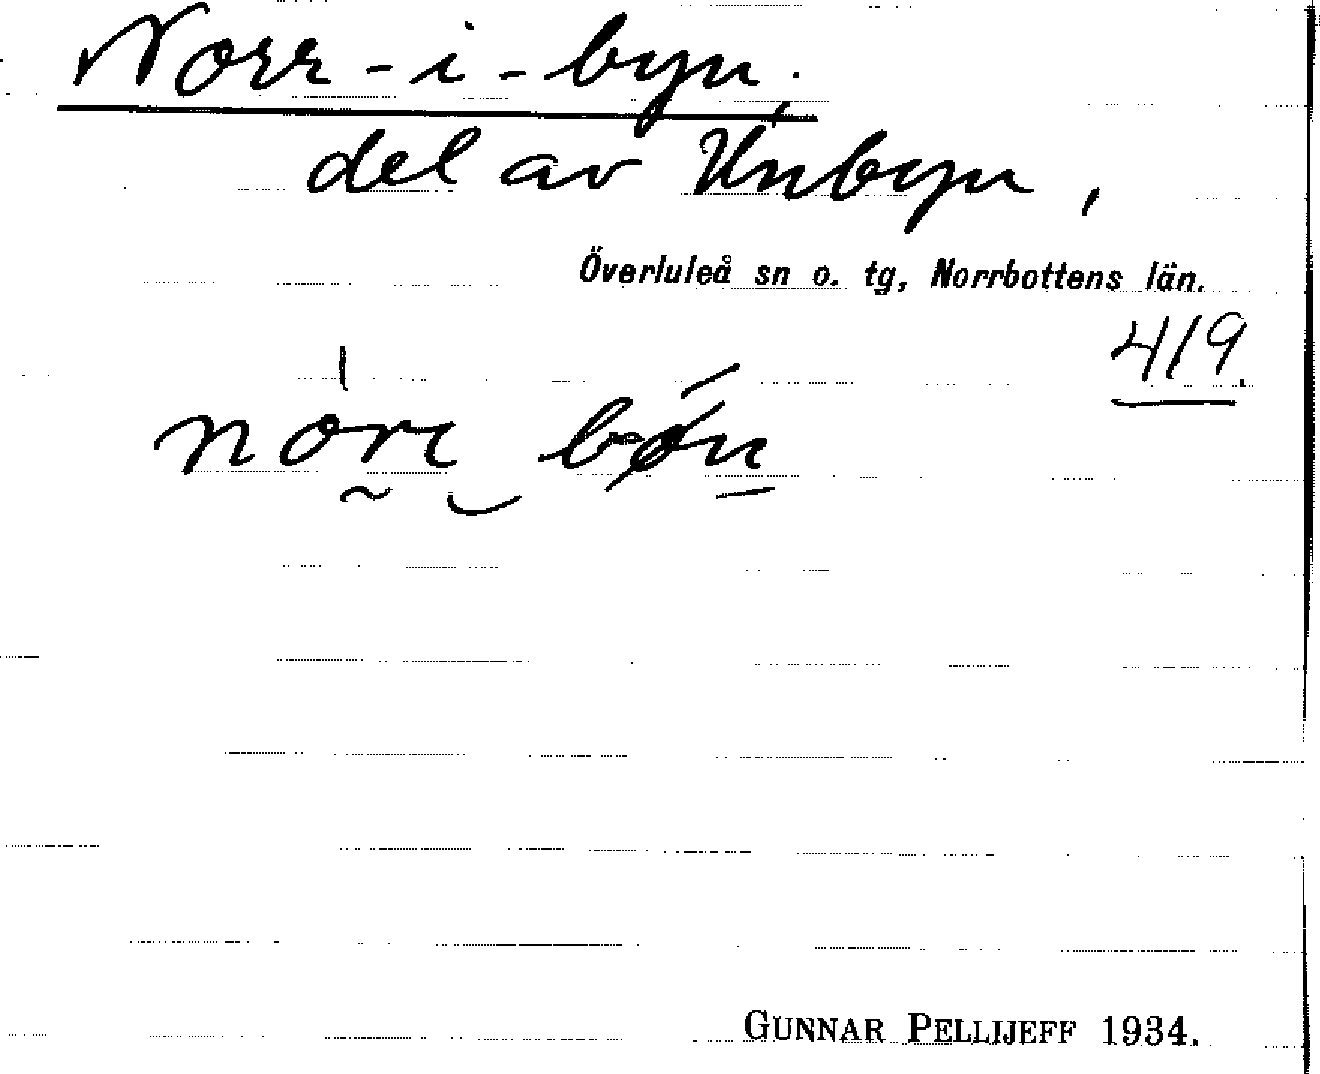 Norr-i-byn.
del av Unbyn,
Överluleå sn o. tg, Norrbottens län.
419.
GUNNAR PELLIJEFF 1934.